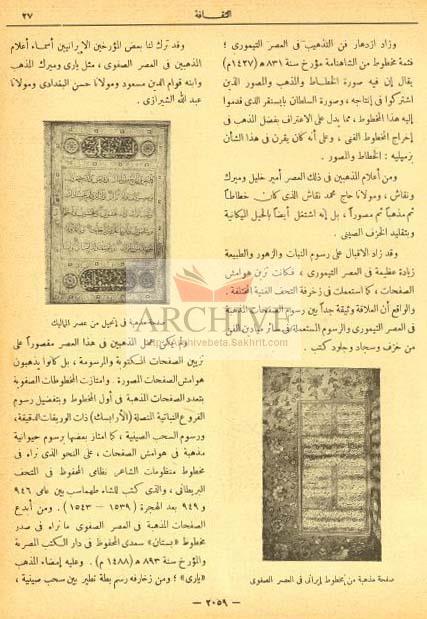 الثقافة
٢٧
وزاد ازدهار فن التذهيب فى العصر التيمورى ؛
فثمة مخطوط من الشاهنامة مؤرخ سنة ٨٣١ ﻫ (١٤٢٧م)
يقال إن فيه صورة الخطاط والمذهب والمصور الذين
اشتركوا فى إنتاجه ، وصورة السلطان بايسنقر الذى قدموا
إليه هذا المخطوط ، مما يدل على الاعتراف بفضل المذهب فى
إخراج المخطوط الفنى ، وعلى أنه كان يقرن فى هذا الشأن
بزميليه : الخطاط والمصور .
ومن أعلام المذهبين فى ذلك العصر أمير خليل وميرك
ونقاش ، ومولانا حاج محمد نقاش الذى كان خطاطاً
ثم مذهباً ثم مصوراً ، بل إنه اشتغل أيضاً بالحيل الميكانية
وبتقليد الخزف الصينى .
وقد زاد الاقبال على رسوم النبات والزهور والطبيعة
زيادة عظيمة فى العصر التيمورى ، فكانت تزين هوامش
الصفحات ، كما استعملت فى زخرفة التحف الفنية المختلفة .
والواقع أن العلاقة وثيقة جداً بين رسوم الصفحات المذهبة
فى العصر التيمورى والرسوم المستعملة فى سائر ميادين الفن
من خزف وسجاد وجلود كتب .
صفحة مذهبة من مخطوط إيرانى فى العصر الصفوى
وقد ترك لنا بعض المؤرخين الإيرانيين أسماء أعلام
المذهبين فى العصر الصفوى ، مثل يارى وميرك المذهب
وابنه قوام الدين مسعود ومولانا حسن البغدادى ومولانا
عبد الله الشيرازى .
مذهبة فى إنجيل من عصر المماليك
ولم يكن عمل المذهبين فى هذا العصر مقصوراً على
تزيين الصفحات المكتوبة والمرسومة ، بل كانوا يذهبون
هوامش الصفحات المصورة . وامتازت المخطوطات الصفوية
بتعدد الصفحات المذهبة فى أول المخطوط وبتفضيل رسوم
الفروع النباتية المتصلة (الأرابسك) ذات الوريقات الدقيقة،
ورسوم السحب الصينية ، كما امتاز بعضها برسوم حيوانية
مذهبة فى هوامش الصفحات ، على النحو الذى نراه فى
مخطوط منظومات الشاعر نظامى المحفوظ فى المتحف
البريطانى ، والذى كتب للشاه طهماسب بين عامى ٩٤٦
و ٩٤٩ بعد الهجرة (١٥٣٩ — ١٥٤٣) . ومن أبدع
الصفحات المذهبة فى العصر الصفوى ما نراه فى صدر
مخطوط «بستان» سعدى المحفوظ فى دار الكتب المصرية
والمؤرخ سنة ٨٩٣ ﻫ (١٤٨٨ م) . وعليه إمضاء المذهب
«يارى» ؛ ومن زخارفه رسم بطة تطير بين سحب صينية ،
— ٢٠٥٩ —
ARCHIVE
archivebeta.Sakhrit.com